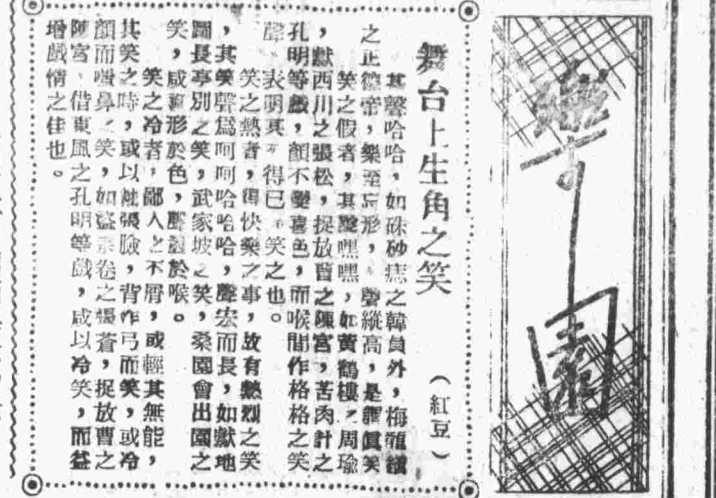 樂園
舞台上生角之笑（紅豆）
其聲哈哈，如硃砂痣之韓員外，梅龍鎮
之正德帝，樂至忘形，聲縱高，是謂眞笑
笑之假者，其聲嘿嘿，如黃鶴樓之周瑜
，獻西川之張松，捉放曹之陳宮，苦肉計之
孔明等戲，顏不變喜色，而喉間作格格之笑
聲，表明其不得已笑之也。
笑之熱者，得快樂之事，故有熱烈之笑
，其笑聲爲呵呵哈哈哈，聲宏而長，如獻地
圖長亭別之笑，武家坡之笑，桑園會出園之
笑，咸形於色，聲於喉。
笑之冷者，鄙人之不屑，或輕其無能，
其笑之時，或以袖張臉，背作弓而笑，或冷
顏而嗤鼻之笑，如盜宗卷之張蒼，捉放曹之
陳宮，借東風之孔明等戲，咸以冷笑，而益
增戲情之佳也。